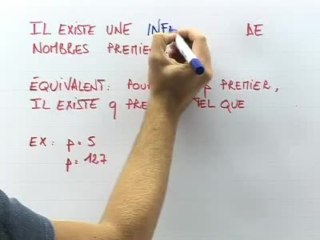 IL EXISTE UNE INF DE
NOMBRES PREMIE
ÉQUIVALENT: POU p PREMIER,
IL EXISTE q PRE TEL QUE
EX: p = 5
p = 127